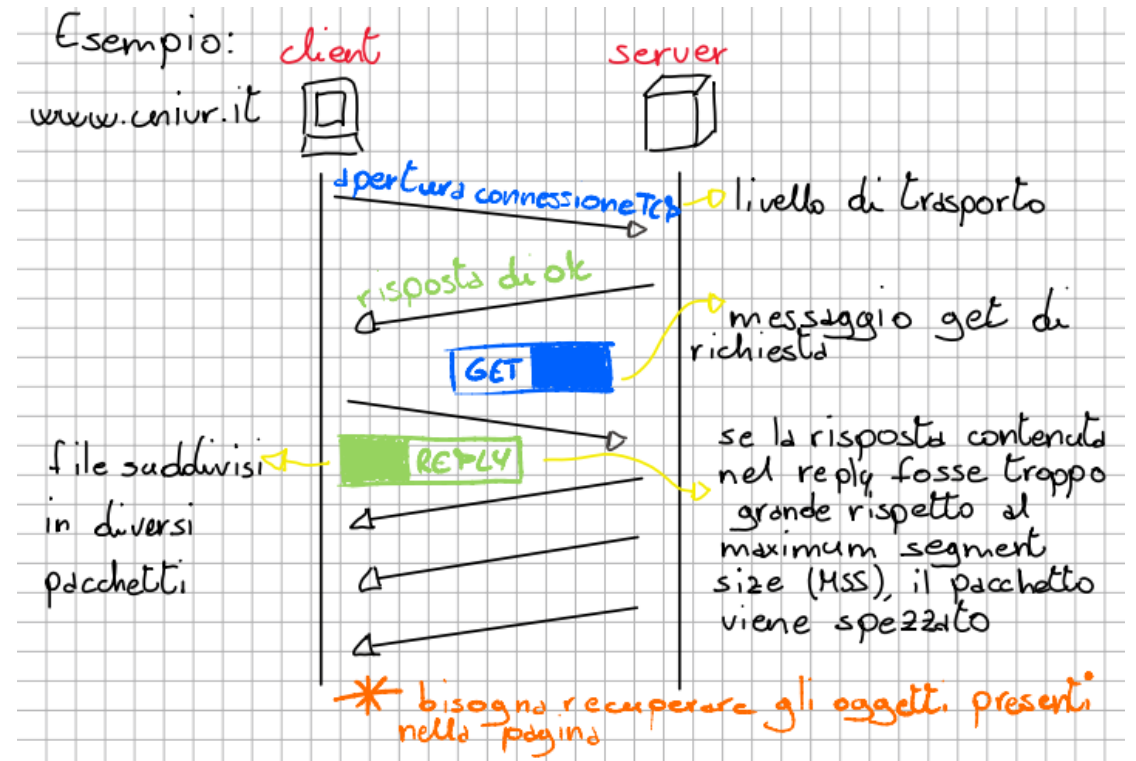 Esempio:
client
server
www.univr.it
apertura connessione TCP
livello di trasporto
risposta di ok
messaggio get di
richiesta
GET
REPLY
file suddivisi
in diversi
pacchetti
se la risposta contenuta
nel reply fosse troppo
grande rispetto al
maximum segment
size (MSS), il pacchetto
viene spezzato
* bisogna recuperare gli oggetti presenti
nella pagina